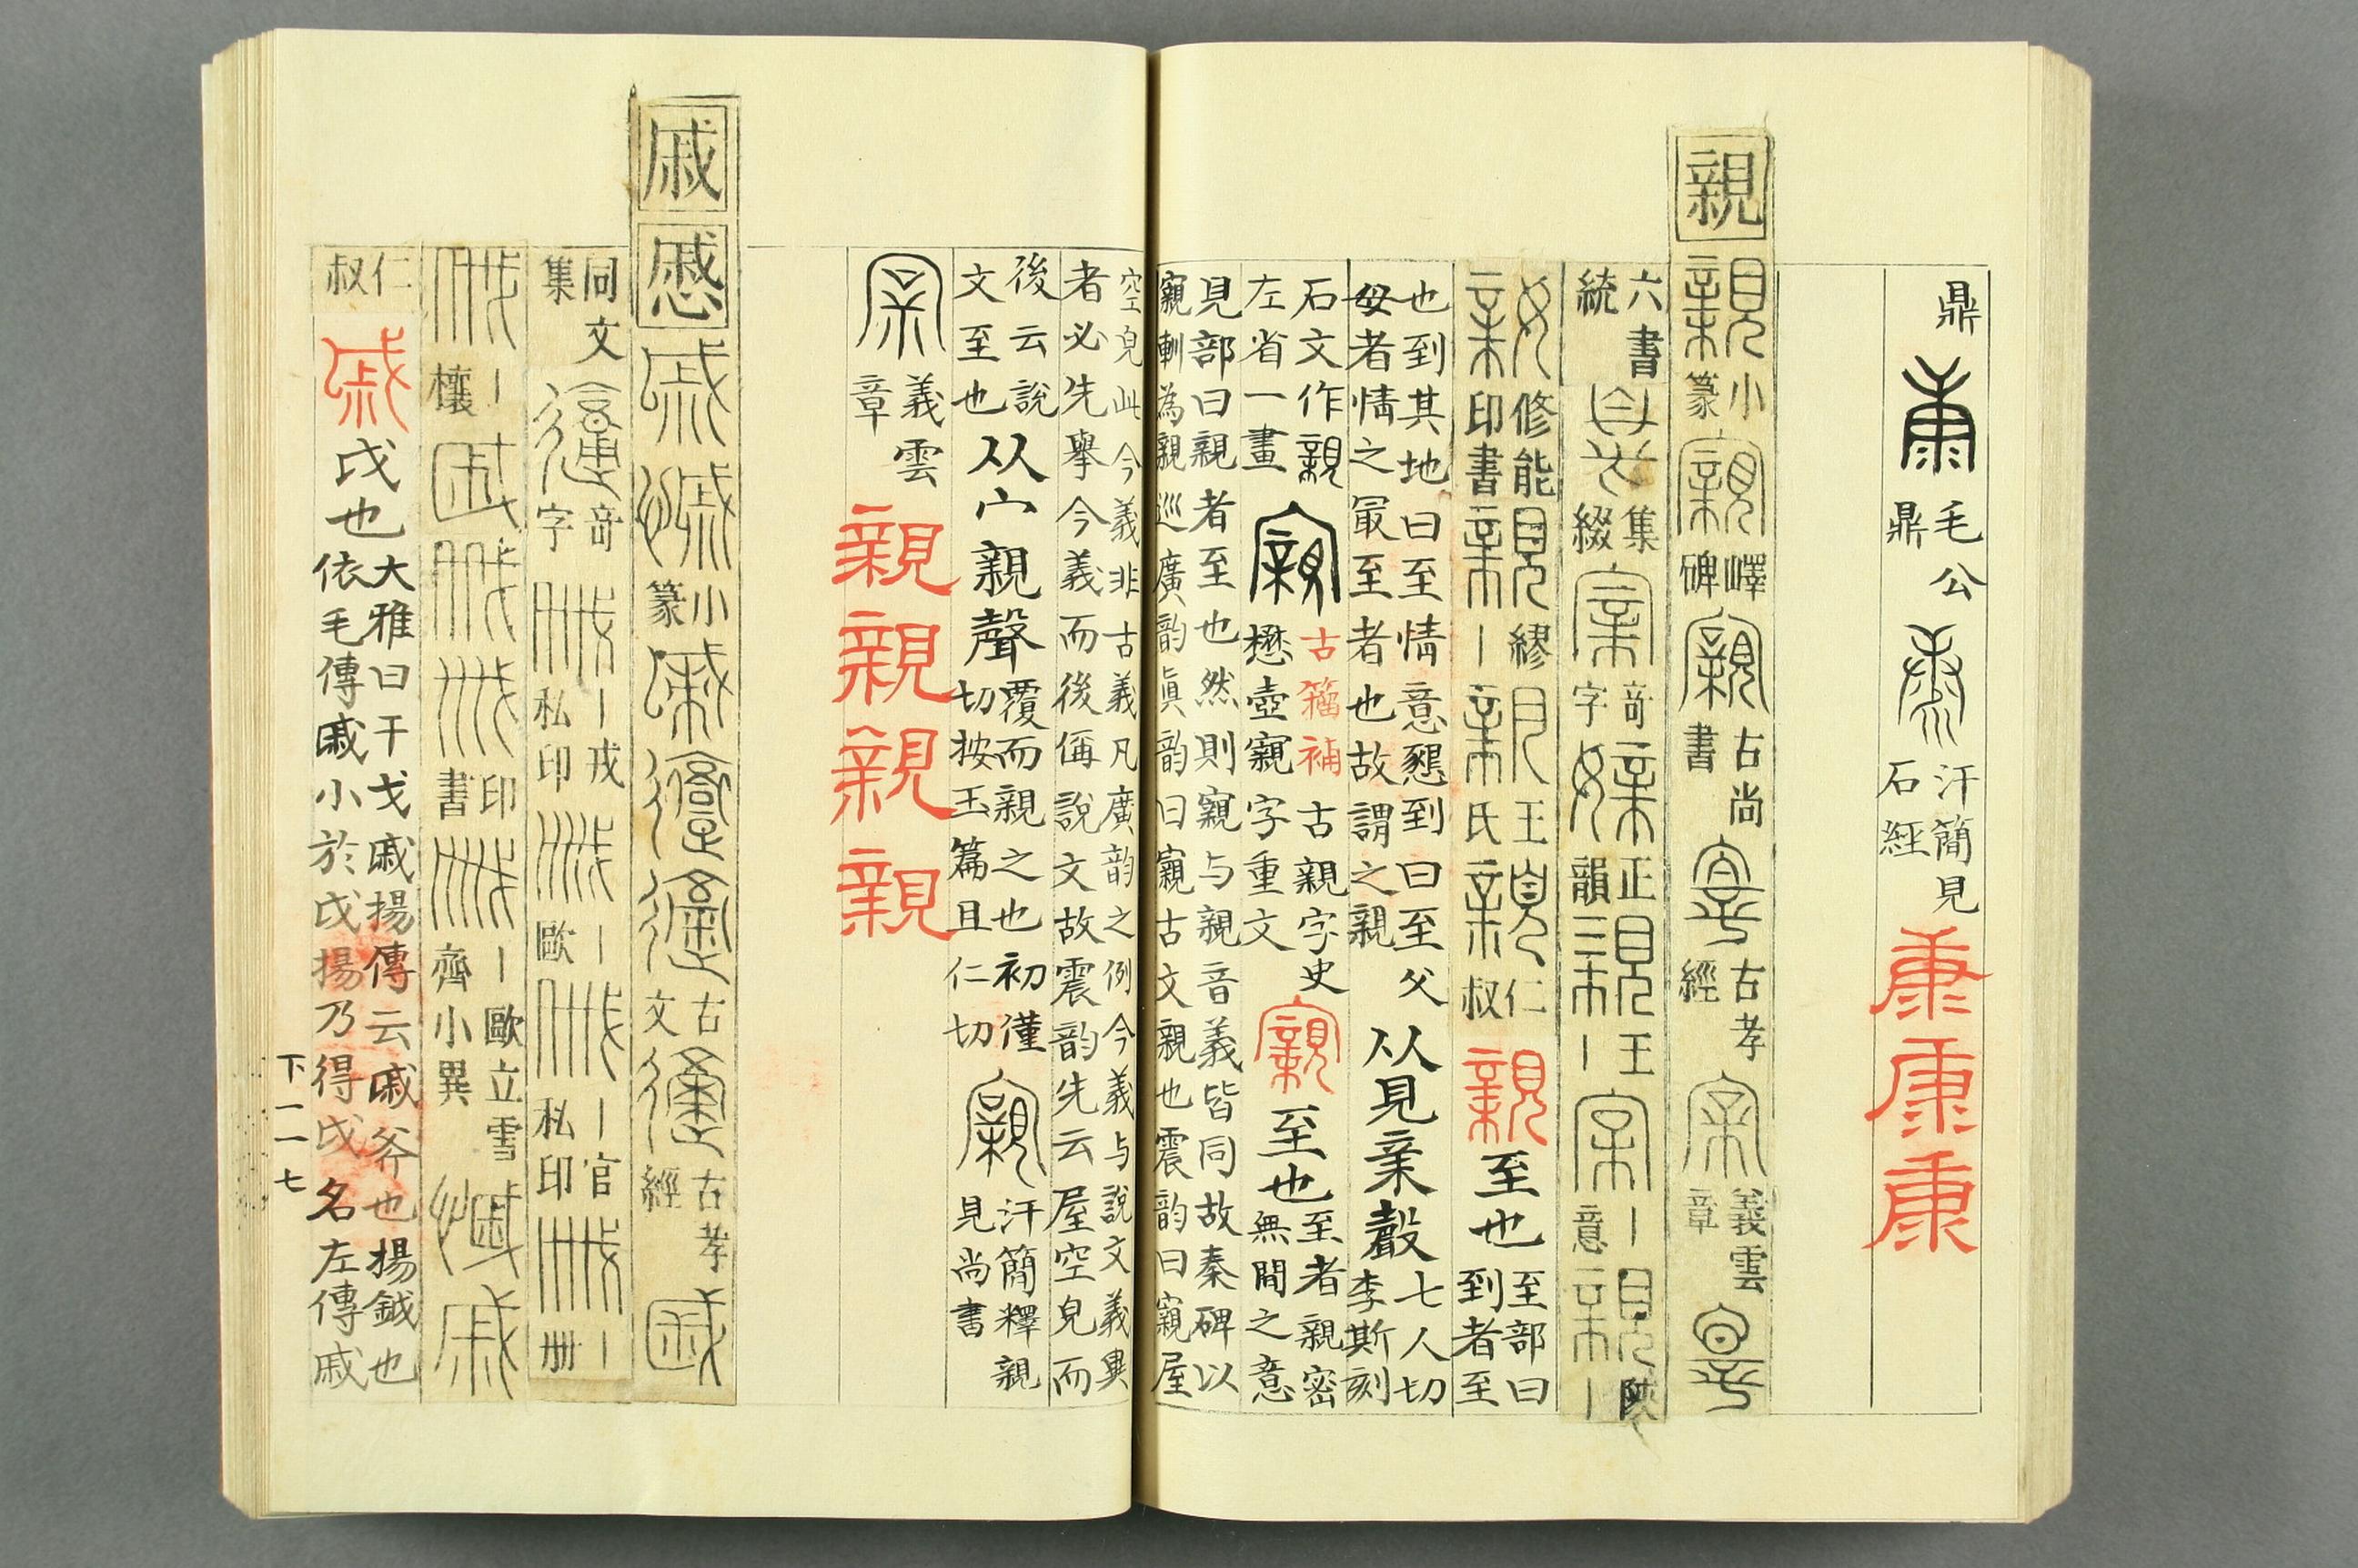 鼎 康 毛公鼎 康 汗簡見石經 康康康
親 親 小篆 親 嶧碑 親 古尚書 古孝經 義雲章
六書統 集綴 奇字 正韻 王 意 陝
親 修能印書 繆 王氏 仁叔 親 至也 至部曰到者至
也到其地曰至情意懇到曰至父母者情之最至者也故謂之親 从見亲聲 七人切李斯刻
石文作親左省一畫 寴 古籀補 古親字史懋壺寴字重文 寴 至也 至者親密無間之意
見部曰親者至也然則寴与親音義皆同故秦碑以寴軔為親巡廣韵眞韵曰寴古文親也震韵曰寴屋
空皃此今義非古義凡廣韵之例今義与說文義異者必先舉今義而後偁說文故震韵先云屋空皃而
後云說文至也 从宀親聲 覆而親之也初僅切按玉篇且仁切 寴 汗簡釋親見尚書
義雲章 親親親親
戚 慼 戚 慼 小篆 戚 古文 古孝經 戚
同文集 奇字 戎私印 歐 官私印 册
櫰 印書 歐立雪 齊小異 慼 戚
仁叔 戚 戉也 大雅曰干戈戚揚傳云戚斧也揚鉞也依毛傳戚小於戉揚乃得戉名左傳戚
下一一七